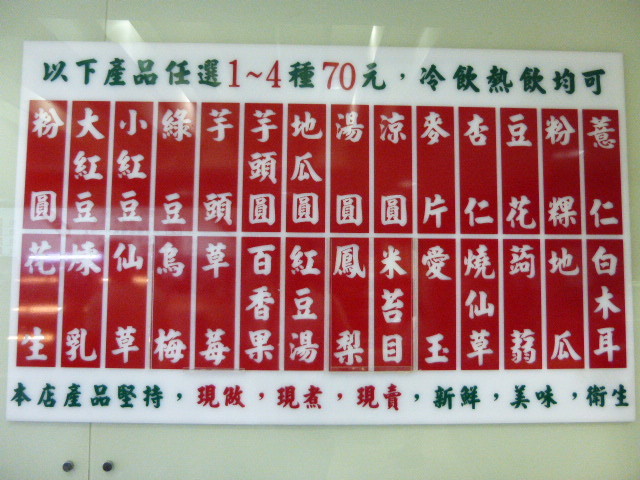 以下產品任選1~4種70元，冷飲熱飲均可
粉圓 大紅豆 小紅豆 綠豆 芋頭 芋頭圓 地瓜圓 湯圓 涼圓 麥片 杏仁 豆花 粉粿 薏仁
花生 煉乳 仙草 烏梅 草莓 百香果 紅豆湯 鳳梨 米苔目 愛玉 燒仙草 蒟蒻 地瓜 白木耳
本店產品堅持，現做，現煮，現賣，新鮮，美味，衛生